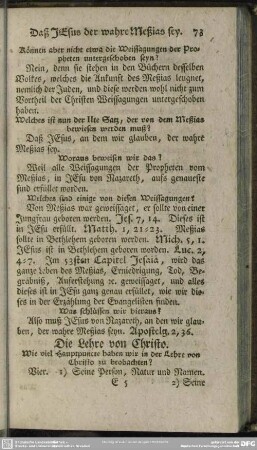 Daß JEsus der wahre Meßias sey. 73
Können aber nicht etwa die Weissagungen der Pro-
pheten untergeschoben seyn?
Nein, denn sie stehen in den Büchern desselben
Volkes, welches die Ankunft des Meßias leugnet,
nemlich der Juden, und diese werden wohl nicht zum
Vortheil der Christen Weissagungen untergeschoben
haben.
Welches ist nun der IIte Satz, der von dem Meßias
bewiesen werden muß?
Daß JEsus, an dem wir glauben, der wahre
Meßias sey.
Woraus beweisen wir das?
Weil alle Weissagungen der Propheten vom
Meßias, in JEsu von Nazareth, aufs genaueste
sind erfüllet worden.
Welches sind einige von diesen Weissagungen?
Von Meßias war geweissaget, er sollte von einer
Jungfrau geboren werden. Jes. 7, 14. Dieses ist
in JEsu erfüllt. Matth. 1, 21:23. Meßias
sollte in Bethlehem geboren werden. Mich. 5, 1.
JEsus ist in Bethlehem geboren worden. Luc. 2,
4:7. Im 53sten Capitel Jesaiä, wird das
ganze Leben des Meßias, Erniedrigung, Tod, Be-
gräbniß, Auferstehung ꝛc. geweissaget, und alles
dieses ist in JEsu ganz genau erfüllet, wie wir die-
ses in der Erzählung der Evangelisten finden.
Was schlüssen wir hieraus?
Also muß JEsus von Nazareth, an den wir glau-
ben, der wahre Meßias seyn. Apostelg. 2, 36.
Die Lehre von Christo.
Wie viel Hauptpuncte haben wir in der Lehre von
Christo zu beobachten?
Vier. 1) Seine Person, Natur und Namen.
E 5 2) Seine